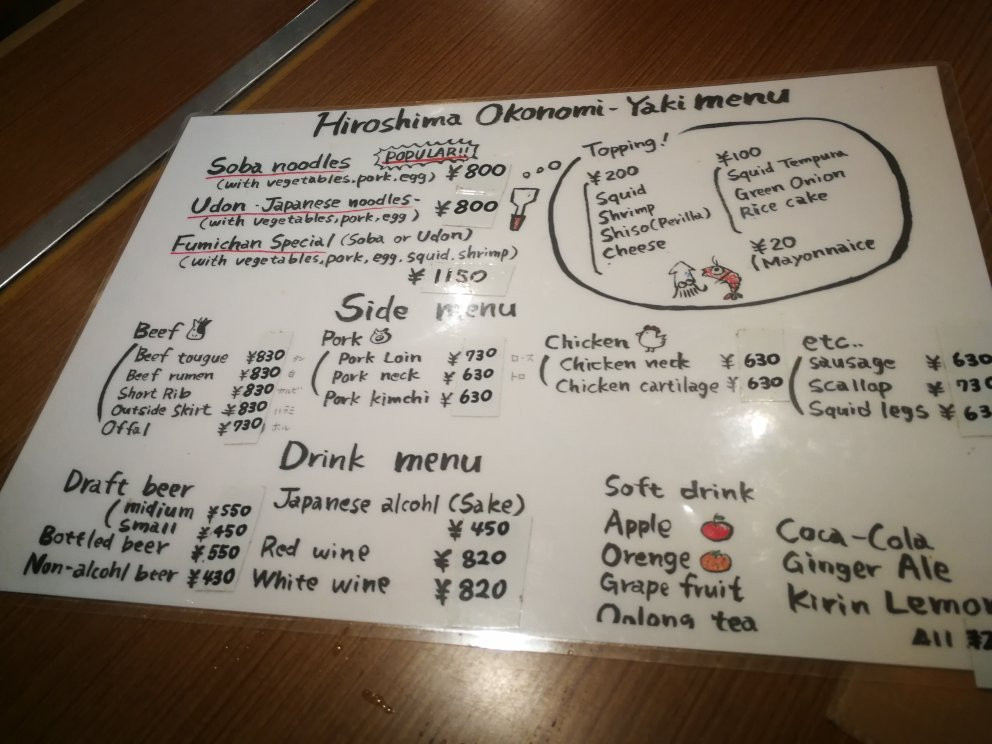 Hiroshima Okonomi-Yaki menu
Soba noodles POPULAR!!
(with vegetables.pork.egg) ¥800
Udon -Japanese noodles-
(with vegetables,pork,egg) ¥800
Fumichan Special (Soba or Udon)
(with vegetables,pork,egg.squid.shrimp)
¥1150
Topping!
¥200
Squid
Shrimp
Shiso(Perilla)
Cheese
¥100
Squid Tempura
Green Onion
Rice cake
¥20
(Mayonnaice
Side menu
Beef
Beef tougue ¥830 タン
Beef rumen ¥830
Short Rib ¥830 カルビ
Outside Skirt ¥830 ハラミ
Offal ¥730 ホル
Pork
Pork Loin ¥730 ロース
Pork neck ¥630 トロ
Pork kimchi ¥630
Chicken
Chicken neck ¥630
Chicken cartilage ¥630
etc..
Sausage ¥630
Scallop ¥730
Squid legs ¥63
Drink menu
Draft beer
midium ¥550
small ¥450
Bottled beer ¥550
Non-alcohl beer ¥430
Japanese alcohl (Sake)
¥450
Red wine ¥820
White wine ¥820
Soft drink
Apple
Orenge
Grape fruit
Oolong tea
Coca-Cola
Ginger Ale
Kirin Lemon
All ¥2